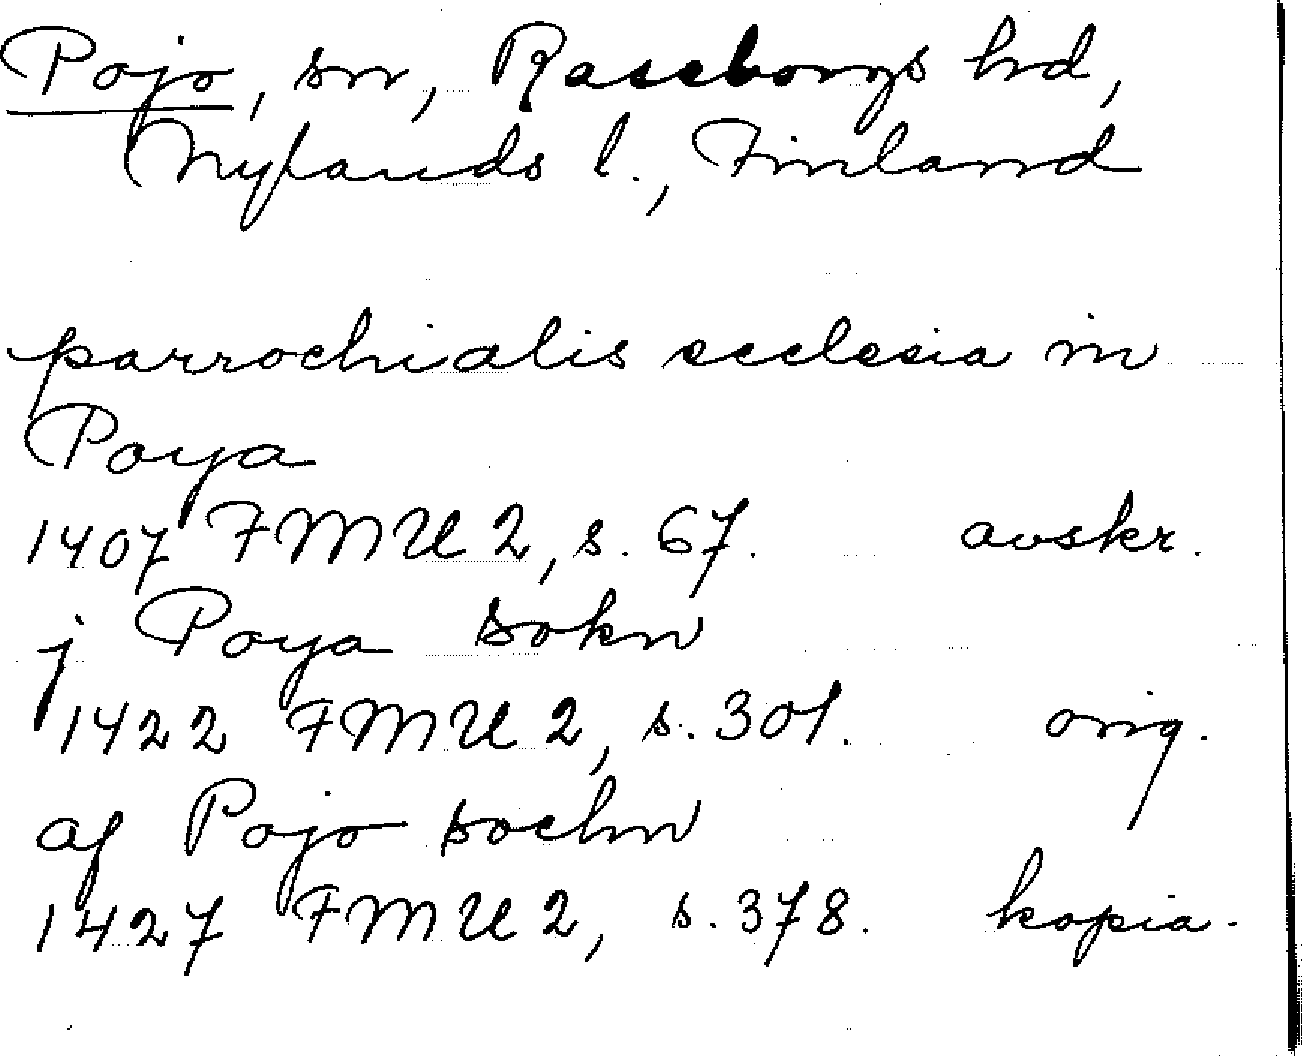 Pojo, sn, Raseborgs hd,
Nylands l., Finland
parrochialis ecclesia in
Poya
1407 FMU 2, s. 67. avskr.
j Poya sokn
1422 FMU 2, s. 301. orig.
af Pojo sochn
1427 FMU 2, s. 378. kopia.